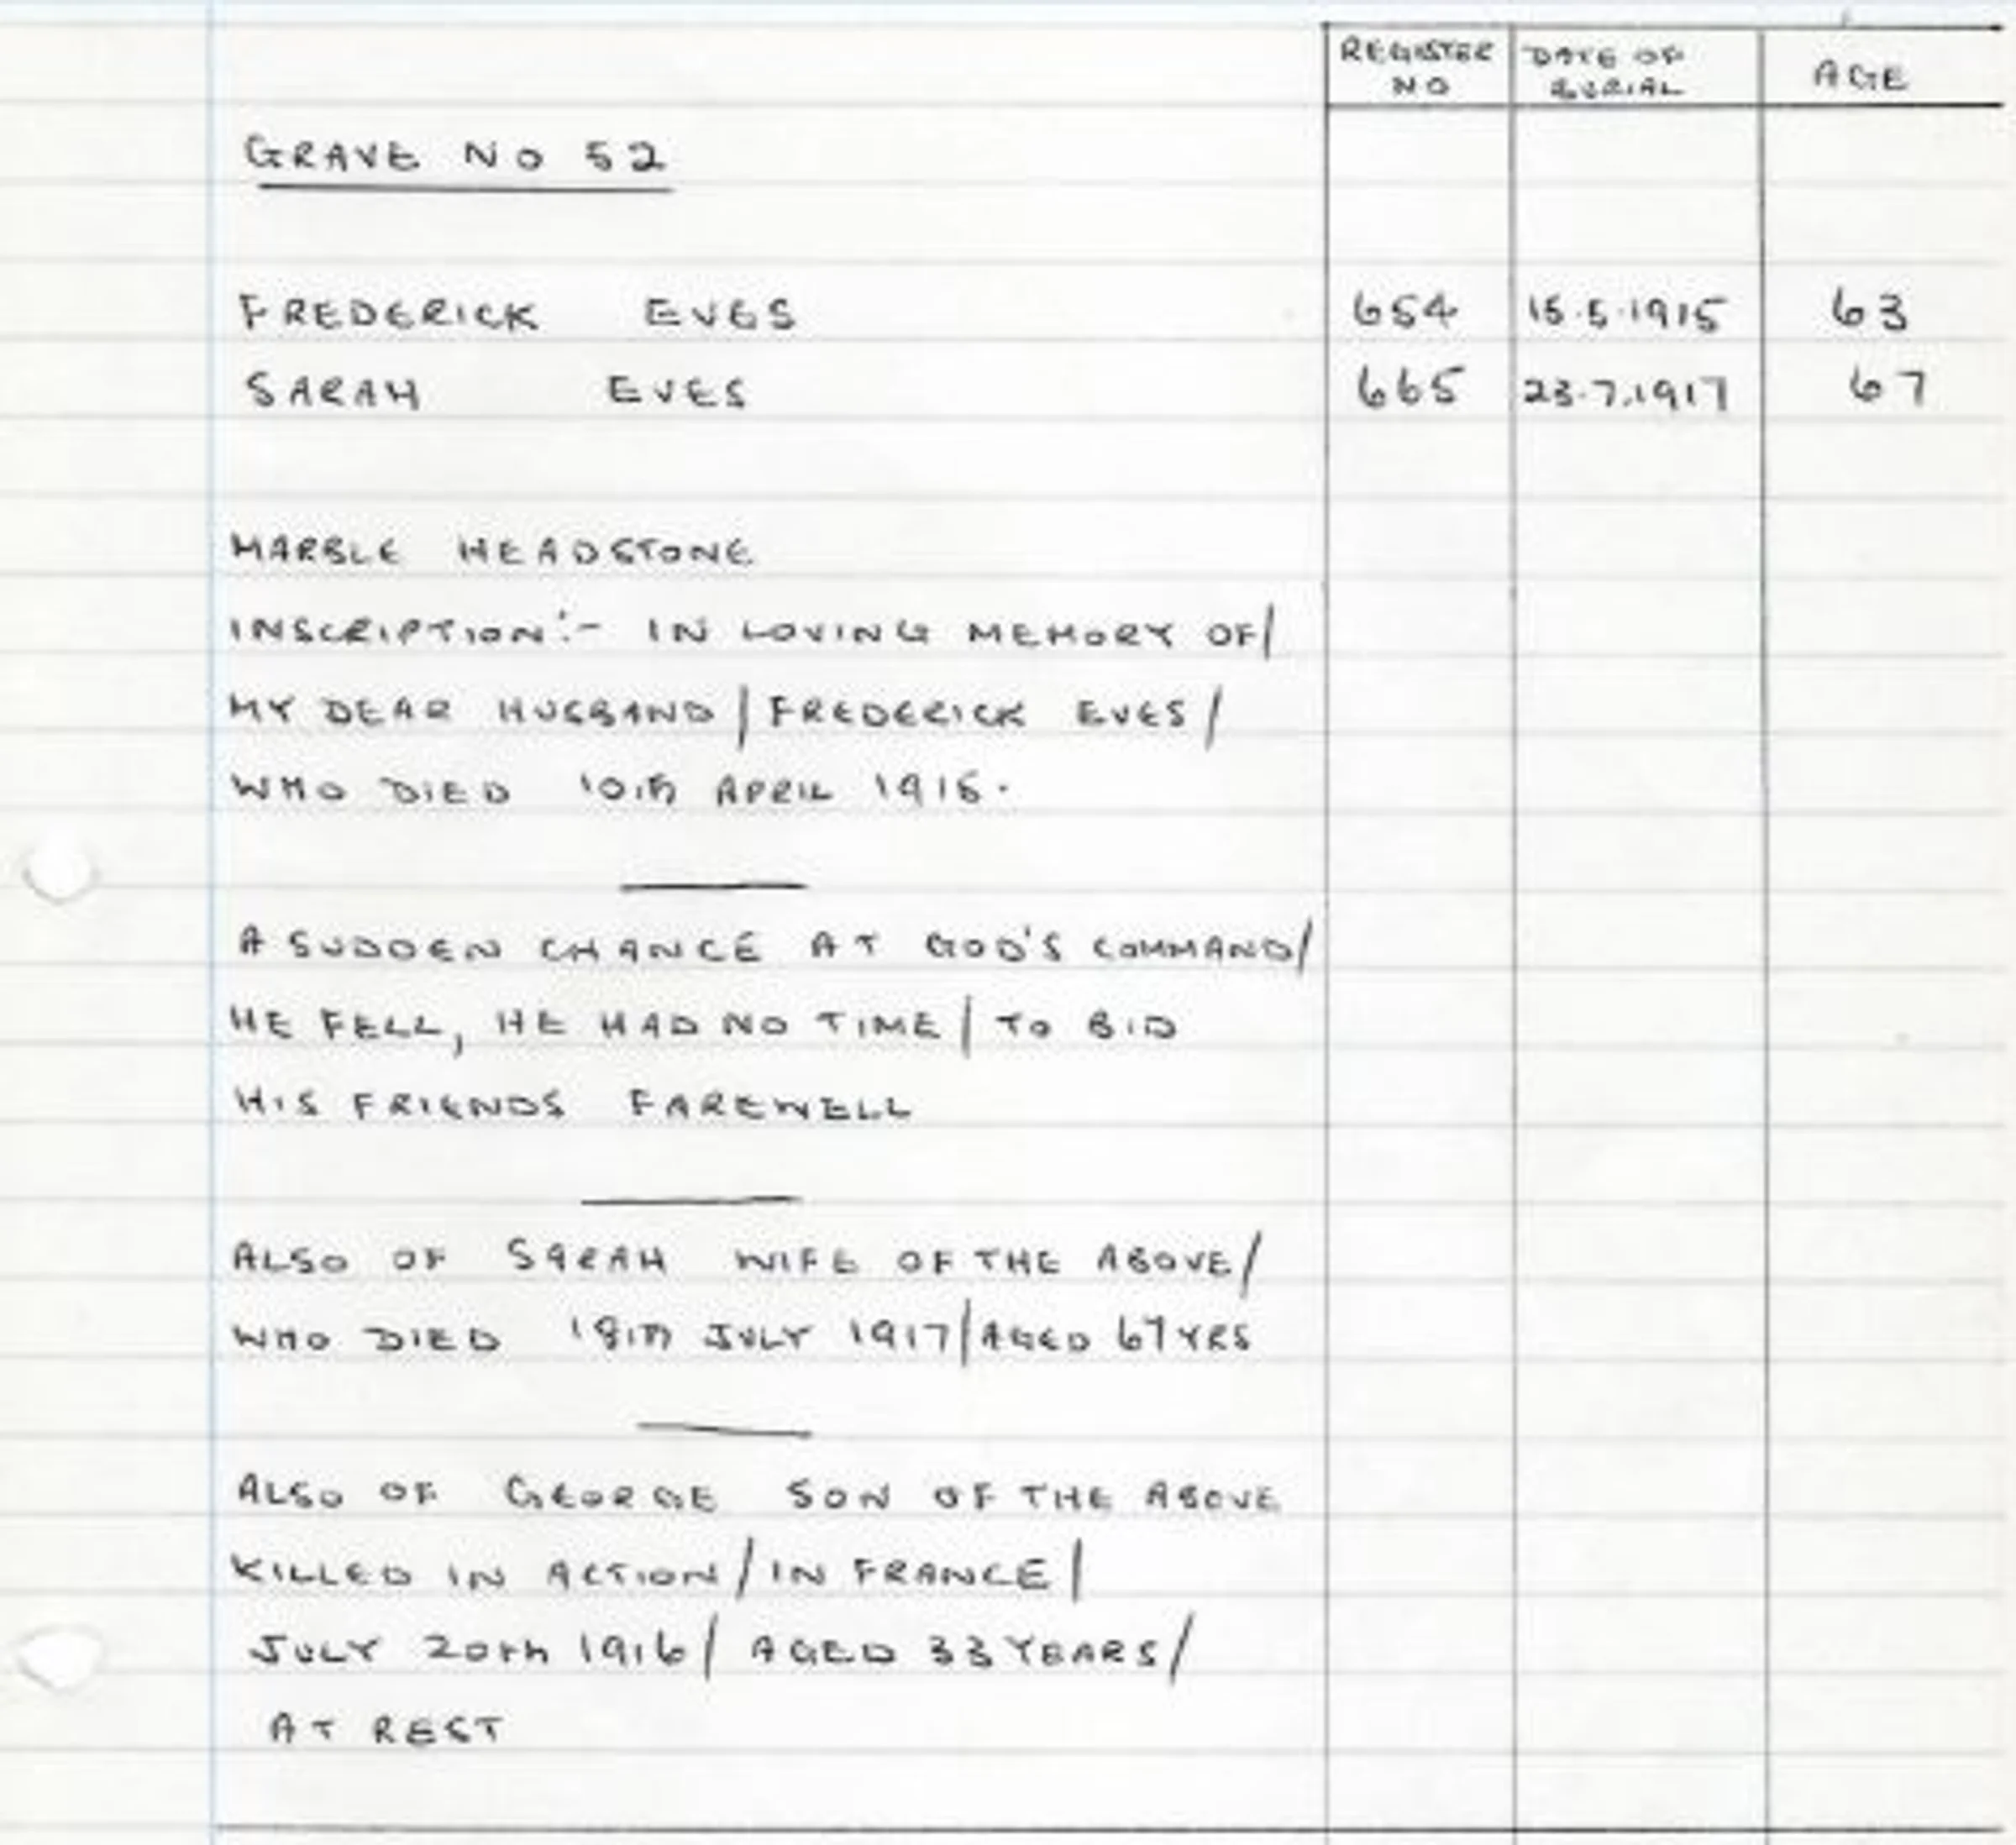 REGISTER NO DATE OF BURIAL AGE
GRAVE No 52
FREDERICK EVES 654 15.5.1915 63
SARAH EVES 665 23.7.1917 67
MARBLE HEADSTONE
INSCRIPTION:- IN LOVING MEMORY OF/
MY DEAR HUSBAND/FREDERICK EVES/
WHO DIED 10th APRIL 1915.
A SUDDEN CHANCE AT GOD'S COMMAND/
HE FELL, HE HAD NO TIME/TO BID
HIS FRIENDS FAREWELL
ALSO OF SARAH WIFE OF THE ABOVE/
WHO DIED 18th JULY 1917/AGED 67 YRS
ALSO OF GEORGE SON OF THE ABOVE
KILLED IN ACTION/IN FRANCE/
JULY 20th 1916/ AGED 33 YEARS/
AT REST